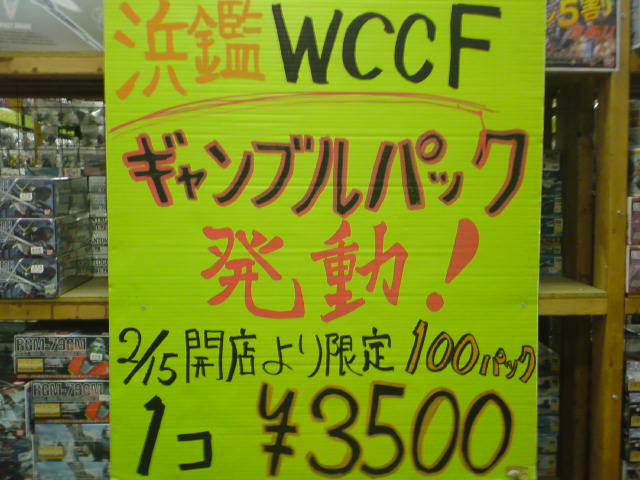 浜鑑 WCCF
ギャンブルパック
発動!
2/15開店より限定 100パック
1コ ¥3500
5割
RGM-79GM
RGM-79GM